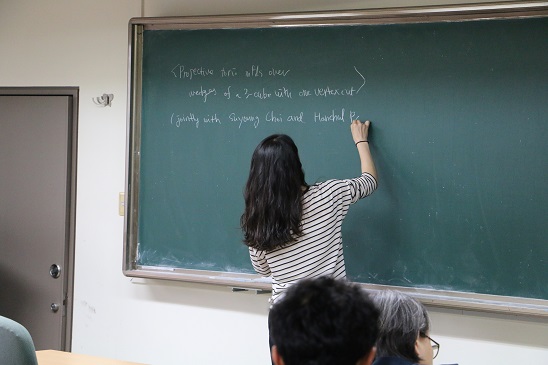 <Projective toric mfds over
wedges of a 3-cube with one vertex cut>
(jointly with Suyoung Choi and Hanchul P